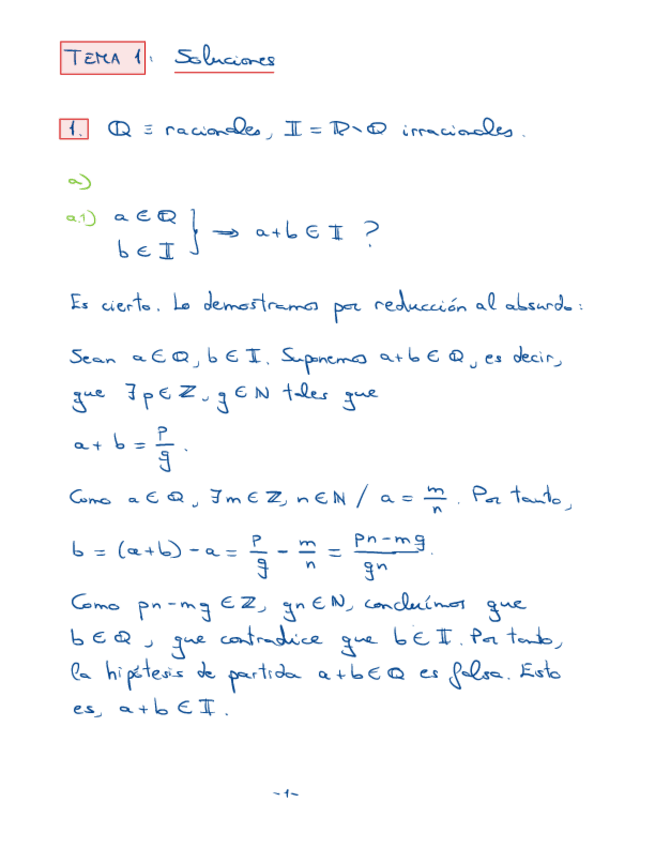 TEMA 1: Soluciones
1. ℚ ≡ racionales, 𝕀 = ℝ∖ℚ irracionales.
a)
a.1) a ∈ ℚ
b ∈ 𝕀 } ⇒ a+b ∈ 𝕀 ?
Es cierto. Lo demostramos por reducción al absurdo:
Sean a ∈ ℚ, b ∈ 𝕀. Suponemos a+b ∈ ℚ, es decir,
que ∃ p ∈ ℤ, q ∈ ℕ tales que
a + b = p/q.
Como a ∈ ℚ, ∃ m ∈ ℤ, n ∈ ℕ / a = m/n. Por tanto,
b = (a+b) - a = p/q - m/n = (pn-mq)/(qn).
Como pn-mq ∈ ℤ, qn ∈ ℕ, concluímos que
b ∈ ℚ, que contradice que b ∈ 𝕀. Por tanto,
la hipótesis de partida a+b ∈ ℚ es falsa. Esto
es, a+b ∈ 𝕀.
-1-